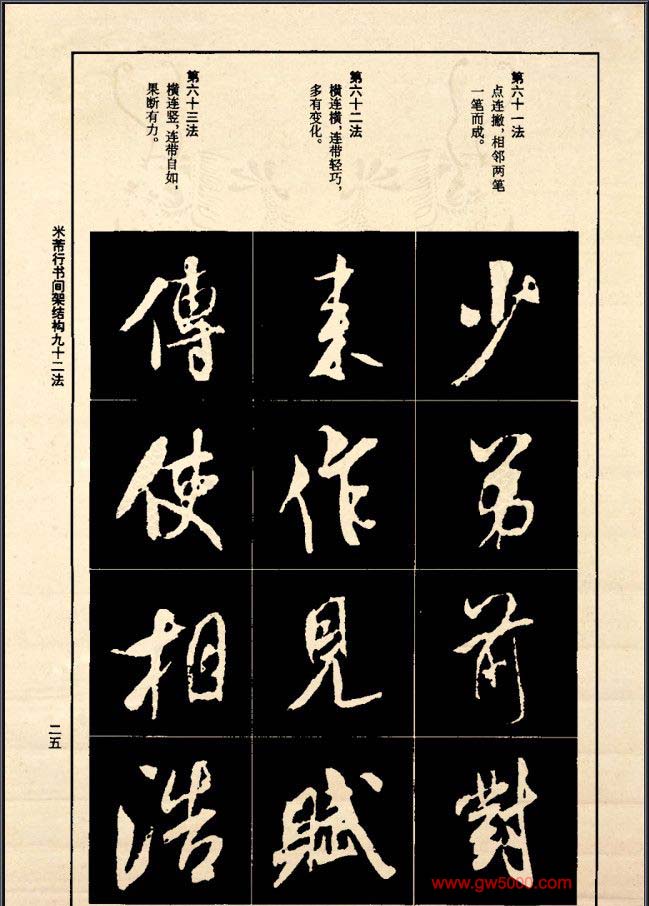 第六十一法
点连撇，相邻两笔
一笔而成。
少
弟
前
對
第六十二法
横连横，连带轻巧，
多有变化。
素
作
見
賦
第六十三法
横连竖，连带自如，
果断有力。
傳
使
相
浩
米芾行书间架结构九十二法
二五
www.gw5000.com